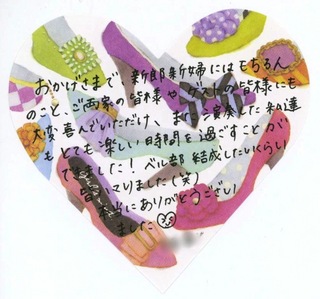 おかげさまで、新郎新婦にはもちろん
のこと、ご両家の皆様やゲストの皆様にも
大変喜んでいただけ、また演奏した私達
もとても楽しい時間を過ごすことが
できました！ベル部結成したいくらい
皆ハマりました(笑)
本当にありがとうござい
ました